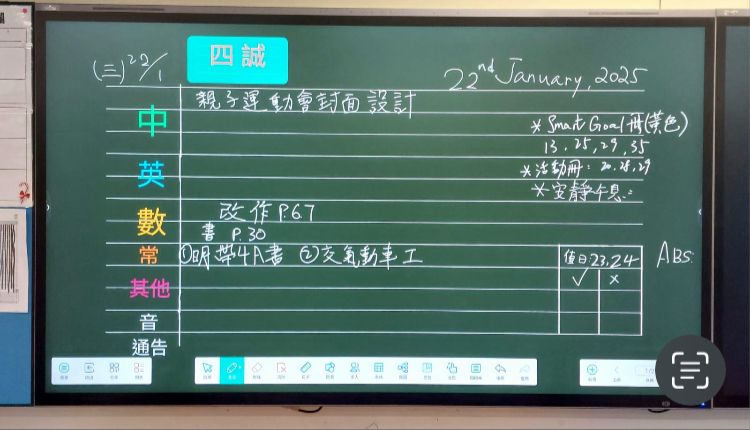 四誠
(三) 22/1
22nd January, 2025
中
親子運動會封面設計
* Smart Goal冊(茶色)
13, 25, 29, 35
英
* 活動冊: 20, 28, 29
* 安靜午息
數
改作 P.67
書 P.30
常
①明帶4A書 ②交氣動車工
值日:23,24
ABS:
✓ ×
其他
音
通告